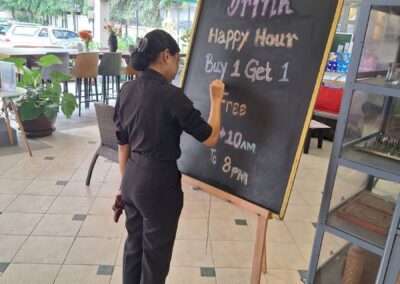 Drink
Happy Hour
Buy 1 Get 1
Free
10AM
To 8PM